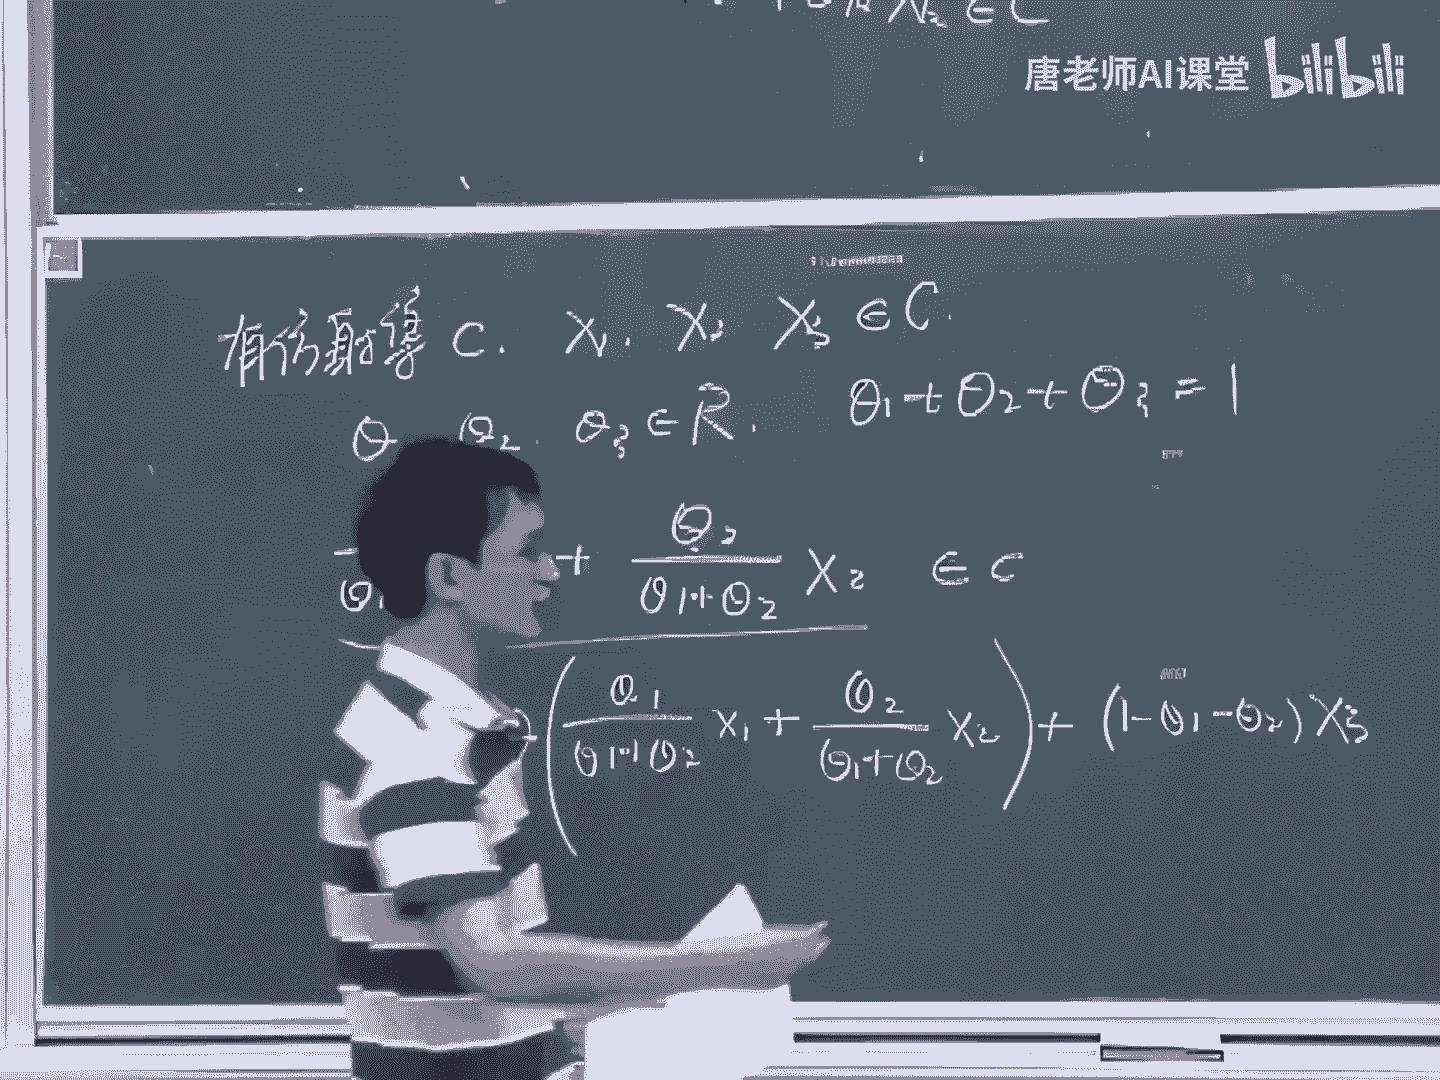 X₂ ∈ C
唐老师AI课堂 bilibili
有仿射集 C. X₁. X₂ X₃ ∈ C.
θ θ₂. θ₃ ∈ R. θ₁ + θ₂ + θ₃ = 1
+ θ₂/(θ₁+θ₂) X₂ ∈ C
(θ₁/(θ₁+θ₂) X₁ + θ₂/(θ₁+θ₂) X₂) + (1-θ₁-θ₂) X₃